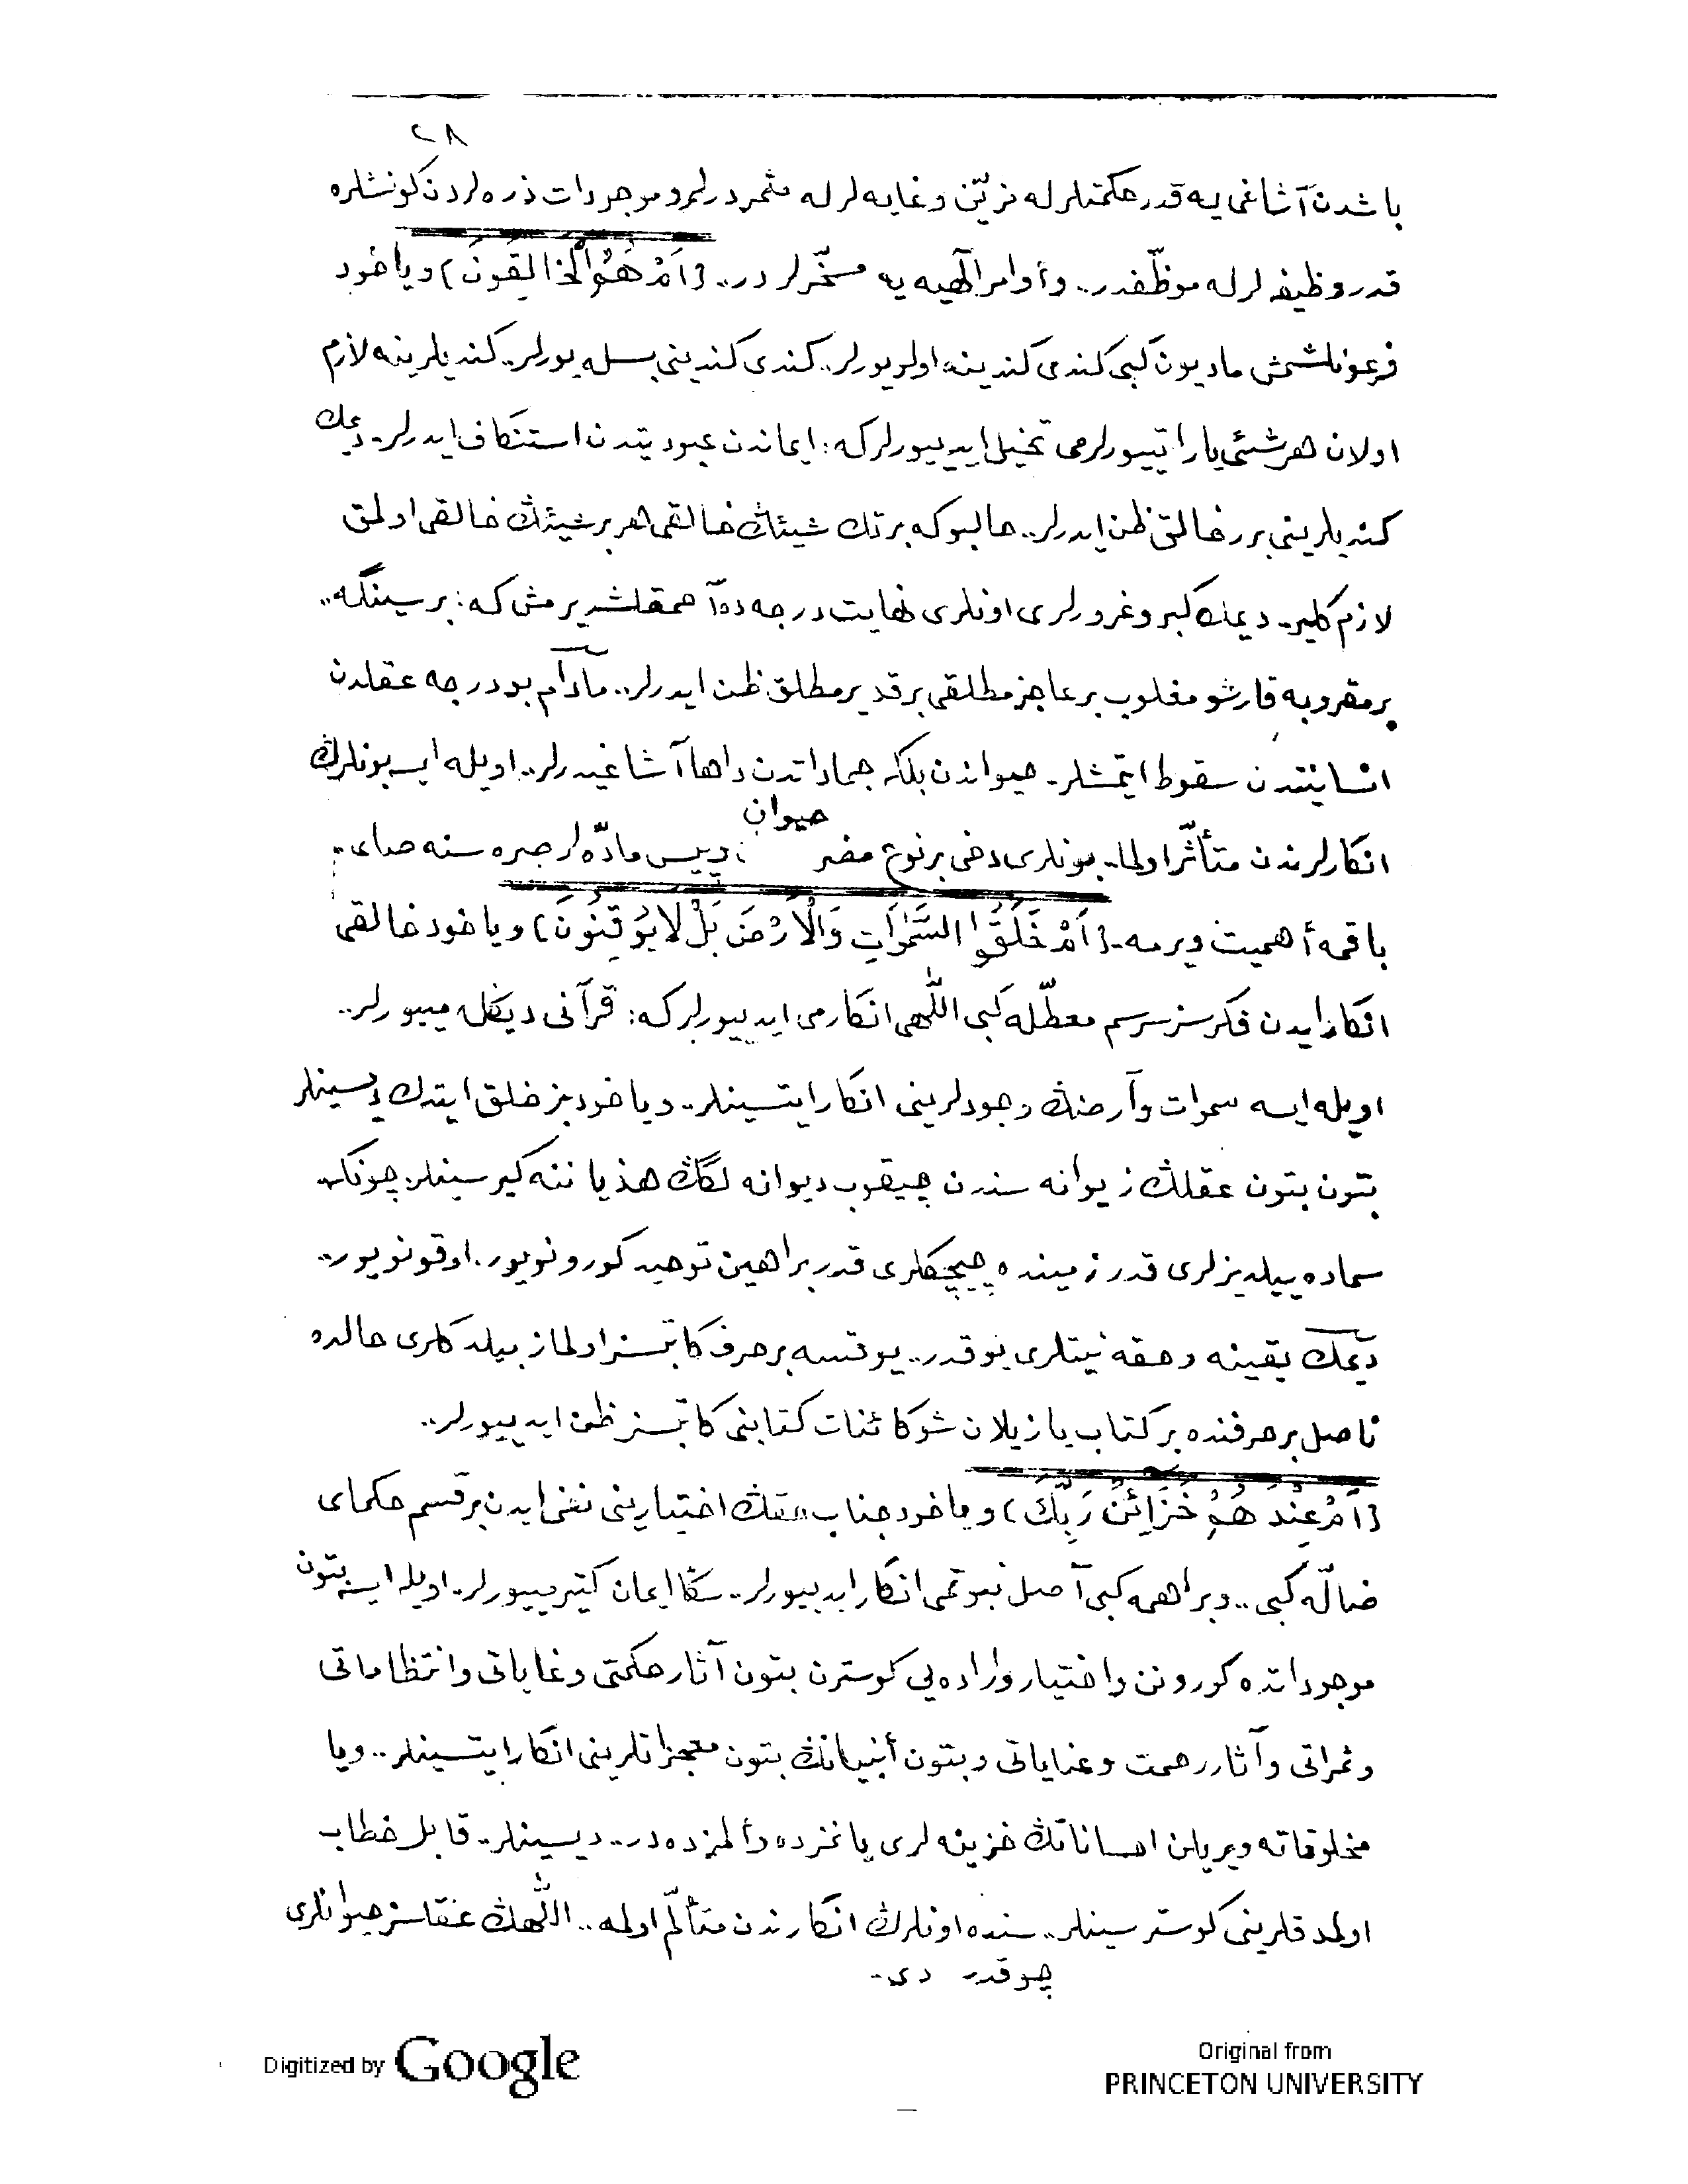 ٢٨
باشدن آشاغى يه قدر حكمتلرله مزيّن وغايه لرله مثمردرلر و موجودات ذره لردن كونشلره
قدر وظيفه لرله موظّفدر.. وأوامر الٓهيه يه مسخّرلر در.. {اَمْ هُمُ الْخَالِقُونَ} وياخود
فرعونلشمش ماديون كبى كندى كندينه اولويورلر.. كندى كندينى بسله يورلر.. كنديلرينه لازم
اولان هر شيئى ياراتييورلرمى تخيل ايدييورلر كه: ايماندن عبوديتدن استنكاف ايدرلر.. ديمك
كنديلرينى برر خالق ظن ايدرلر.. حالبوكه بر تك شيئڭ خالقى هر بر شيئڭ خالقى اولمق
لازم كلير.. ديمك كبر وغرورلرى اونلرى نهايت درجه ده آحمقلشديرمش كه: بر سينگه..
بر مقروبه قارشو مغلوب بر عاجز مطلقى بر قدير مطلق ظن ايدرلر.. مادآم بو درجه عقلدن
انسانيتدن سقوط ايتمشلر.. حيواندن بلكه جماداتدن داها آشاغيدرلر.. اويله ايسه بونلرڭ
انكارلرندن متأثّر اولما.. بونلرى دخى بر نوع مضر حيوان و پيس مادّه لر صيره سنه صاى..
باقمه أهميت ويرمه.. {اَمْ خَلَقُوا السَّمٰوَاتِ وَالْاَرْضَ بَلْ لَا يُوقِنُونَ} وياخود خالقى
انكار ايدن فكرسز سرسم معطّله كبى اللّٰهى انكارمى ايدييورلر كه: قرآنى ديڭله مييورلر..
اويله ايسه سموات وآرضڭ وجودلرينى انكار ايتسينلر.. وياخود بز خلق ايتدك ديسينلر
بتون بتون عقلڭ زيوانه سندن چيقوب ديوانه لگڭ هذياننه كيرسينلر. چونكه
سماده ييلديزلرى قدر زمينده چيچكلرى قدر براهين توحيد كورونويور. اوقونويور..
ديمك يقينه وحقه نيتلرى يوقدر.. يوقسه بر حرف كاتبسز اولماز بيلدكلرى حالده
ناصل بر حرفنده بر كتاب يازيلان شو كائنات كتابنى كاتبسز ظن ايدييورلر..
{اَمْ عِنْدَهُمْ خَزَائِنُ رَبِّكَ} وياخود جناب حقڭ اختيارينى نفى ايدن بر قسم حكماى
ضالّه كبى.. وبراهمه كبى آصل نبوتمى انكار ايدييورلر.. سڭا ايمان كتيرمييورلر.. اويله ايسه بتون
موجوداتده كورونن واختيار واراده يى كوسترن بتون آثار حكمتى وغاياتى وانتظاماتى
وثمراتى وآثار رحمت وعناياتى وبتون أنبيانڭ بتون معجزاتلرينى انكار ايتسينلر.. ويا
مخلوقاته ويريلن احساناتڭ خزينه لرى يانمزده وألمزده در.. ديسينلر.. قابل خطاب
اولمدقلرينى كوسترسينلر.. سنده اونلرڭ انكارندن متألّم اولمه.. اللّٰهڭ عقلسز حيوانلرى
چوقدر دى..
Digitized by Google
Original from
PRINCETON UNIVERSITY